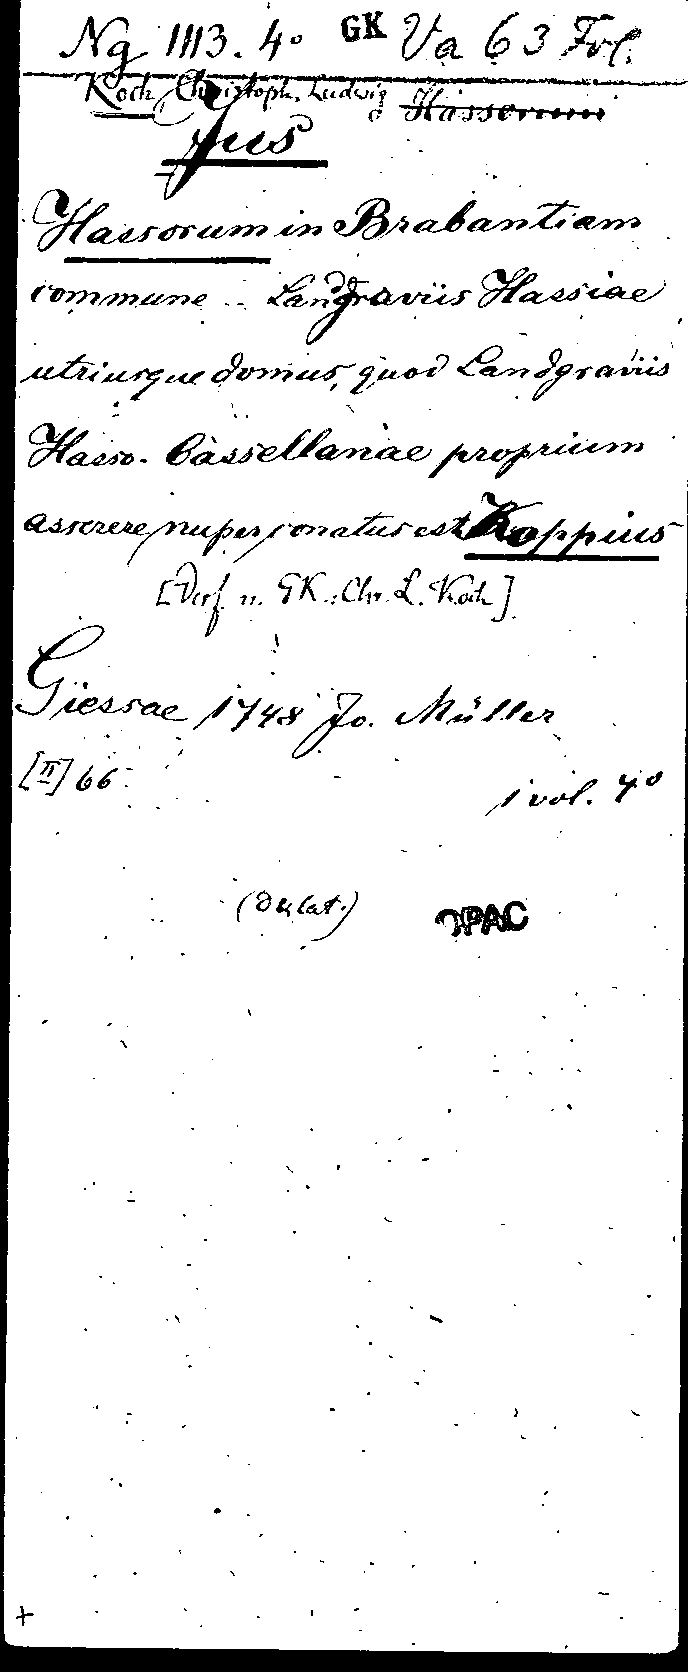 Ng 1113. 4° GK Va 63 Fol.
Koch, Christoph. Ludwig Hassorum
Jus
Hassorum in Brabantiam
commune .. Landgraviis Hassiae
utriusque domus, quod Landgraviis
Hasso-Cassellanae proprium
asserere nuper conatus est Koppius
[Verf. n. GK.: Chr. L. Koch]
Giessae 1748 Jo. Müller
[II] 66
1 vol. 4°
OPAC
+